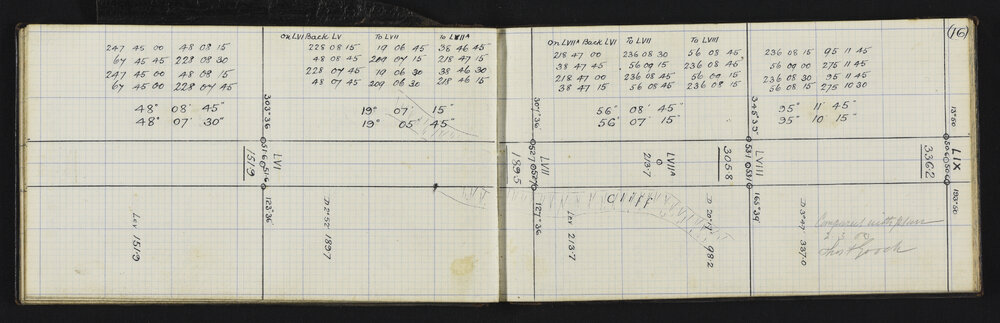 (16)
on LVI Back LV To LVII To LVIIA
247 45 00 48 08 15 228 08 15 19 06 45 38 46 45
67 45 45 228 08 30 48 08 45 209 04 15 218 47 15
247 45 00 48 09 15 228 04 45 19 06 30 38 46 30
67 45 00 228 04 45 48 07 45 209 06 30 218 46 15
48° 08' 45" 19° 07' 15"
48° 07' 30" 19° 05' 45"
303°36
516 516
LVI
1519
123°36'
Lev 151.9
D 2°52 189.7
on LVIIA Back LVI To LVII To LVIII
218 47 00 236 08 30 56 08 45 236 08 15 95 11 45
38 47 45 56 09 15 236 08 45 56 09 00 275 11 45
218 47 00 236 08 45 56 09 15 236 08 30 95 11 45
38 47 15 56 08 45 236 08 15 56 08 15 275 10 30
56° 08' 45" 95° 11' 45"
56° 07' 15" 95° 10' 15"
307°36
527 527
LVII
1895
127°36
LVIIA
2137
Cliff
Lev 213.7
3058
D 98.2
345°39'
531 531
LVIII
165°39'
D 3°47 337.0
Compared with plan
2.3.00
Gooch
3362
LIX
13°50
506 506
193°50